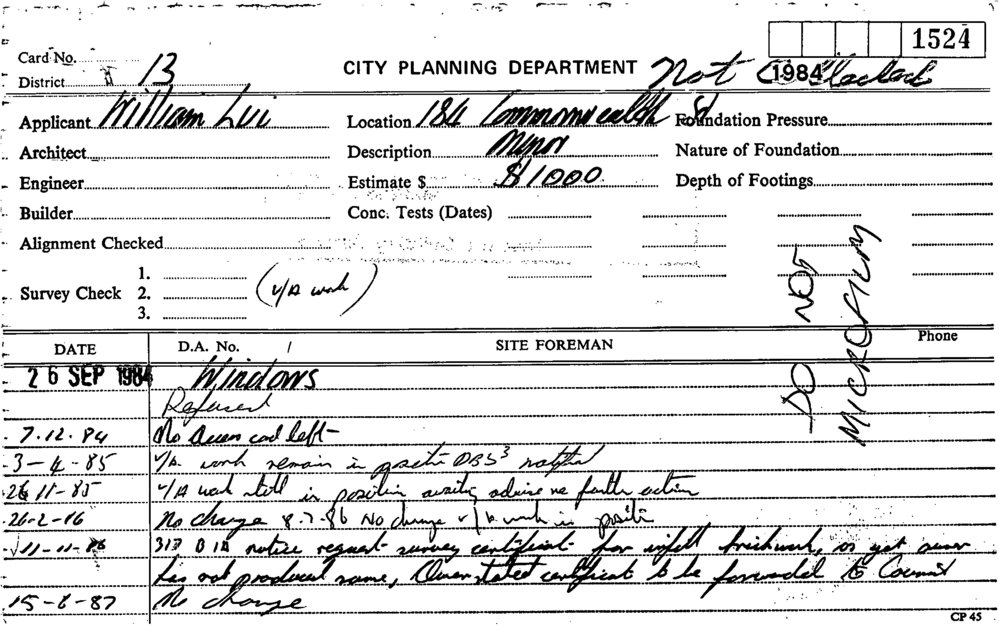 1524
Card No.
District 13
CITY PLANNING DEPARTMENT Not 1984
Applicant William Lui Location 184 Commonwealth St Foundation Pressure
Architect Description Minor Nature of Foundation
Engineer Estimate $ $1000 Depth of Footings
Builder Conc. Tests (Dates)
Alignment Checked
1.
Survey Check 2. (u/a work)
3.
DO NOT
MICROFILM
DATE D.A. No. / SITE FOREMAN Phone
26 SEP 1984 Windows
Refused
7.12.84 No card left
3-4-85 u/a work remain in
26-11-85 u/a work still in position advice re further action
26-2-86 No change 8.7.86 No change u/a work in
11-11-86 notice request survey certificate for infill brickwork, as yet owner
has not produced same, Owner stated certificate to be forwarded to Council
15-6-87 No change
CP 45